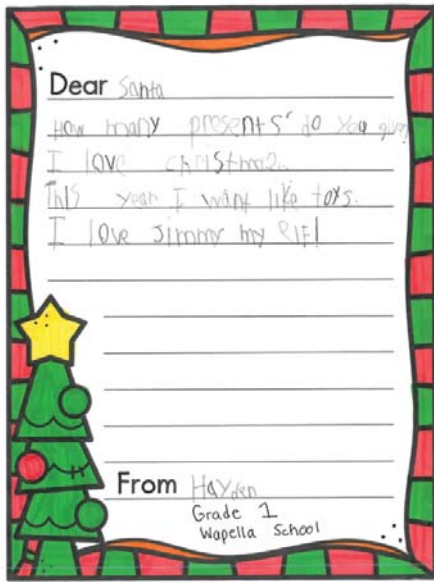 Dear Santa
How many presents do you give?
I love christmas.
This year I want like toys.
I love Jimmy my elf!
From Hayden
Grade 1
Wapella School